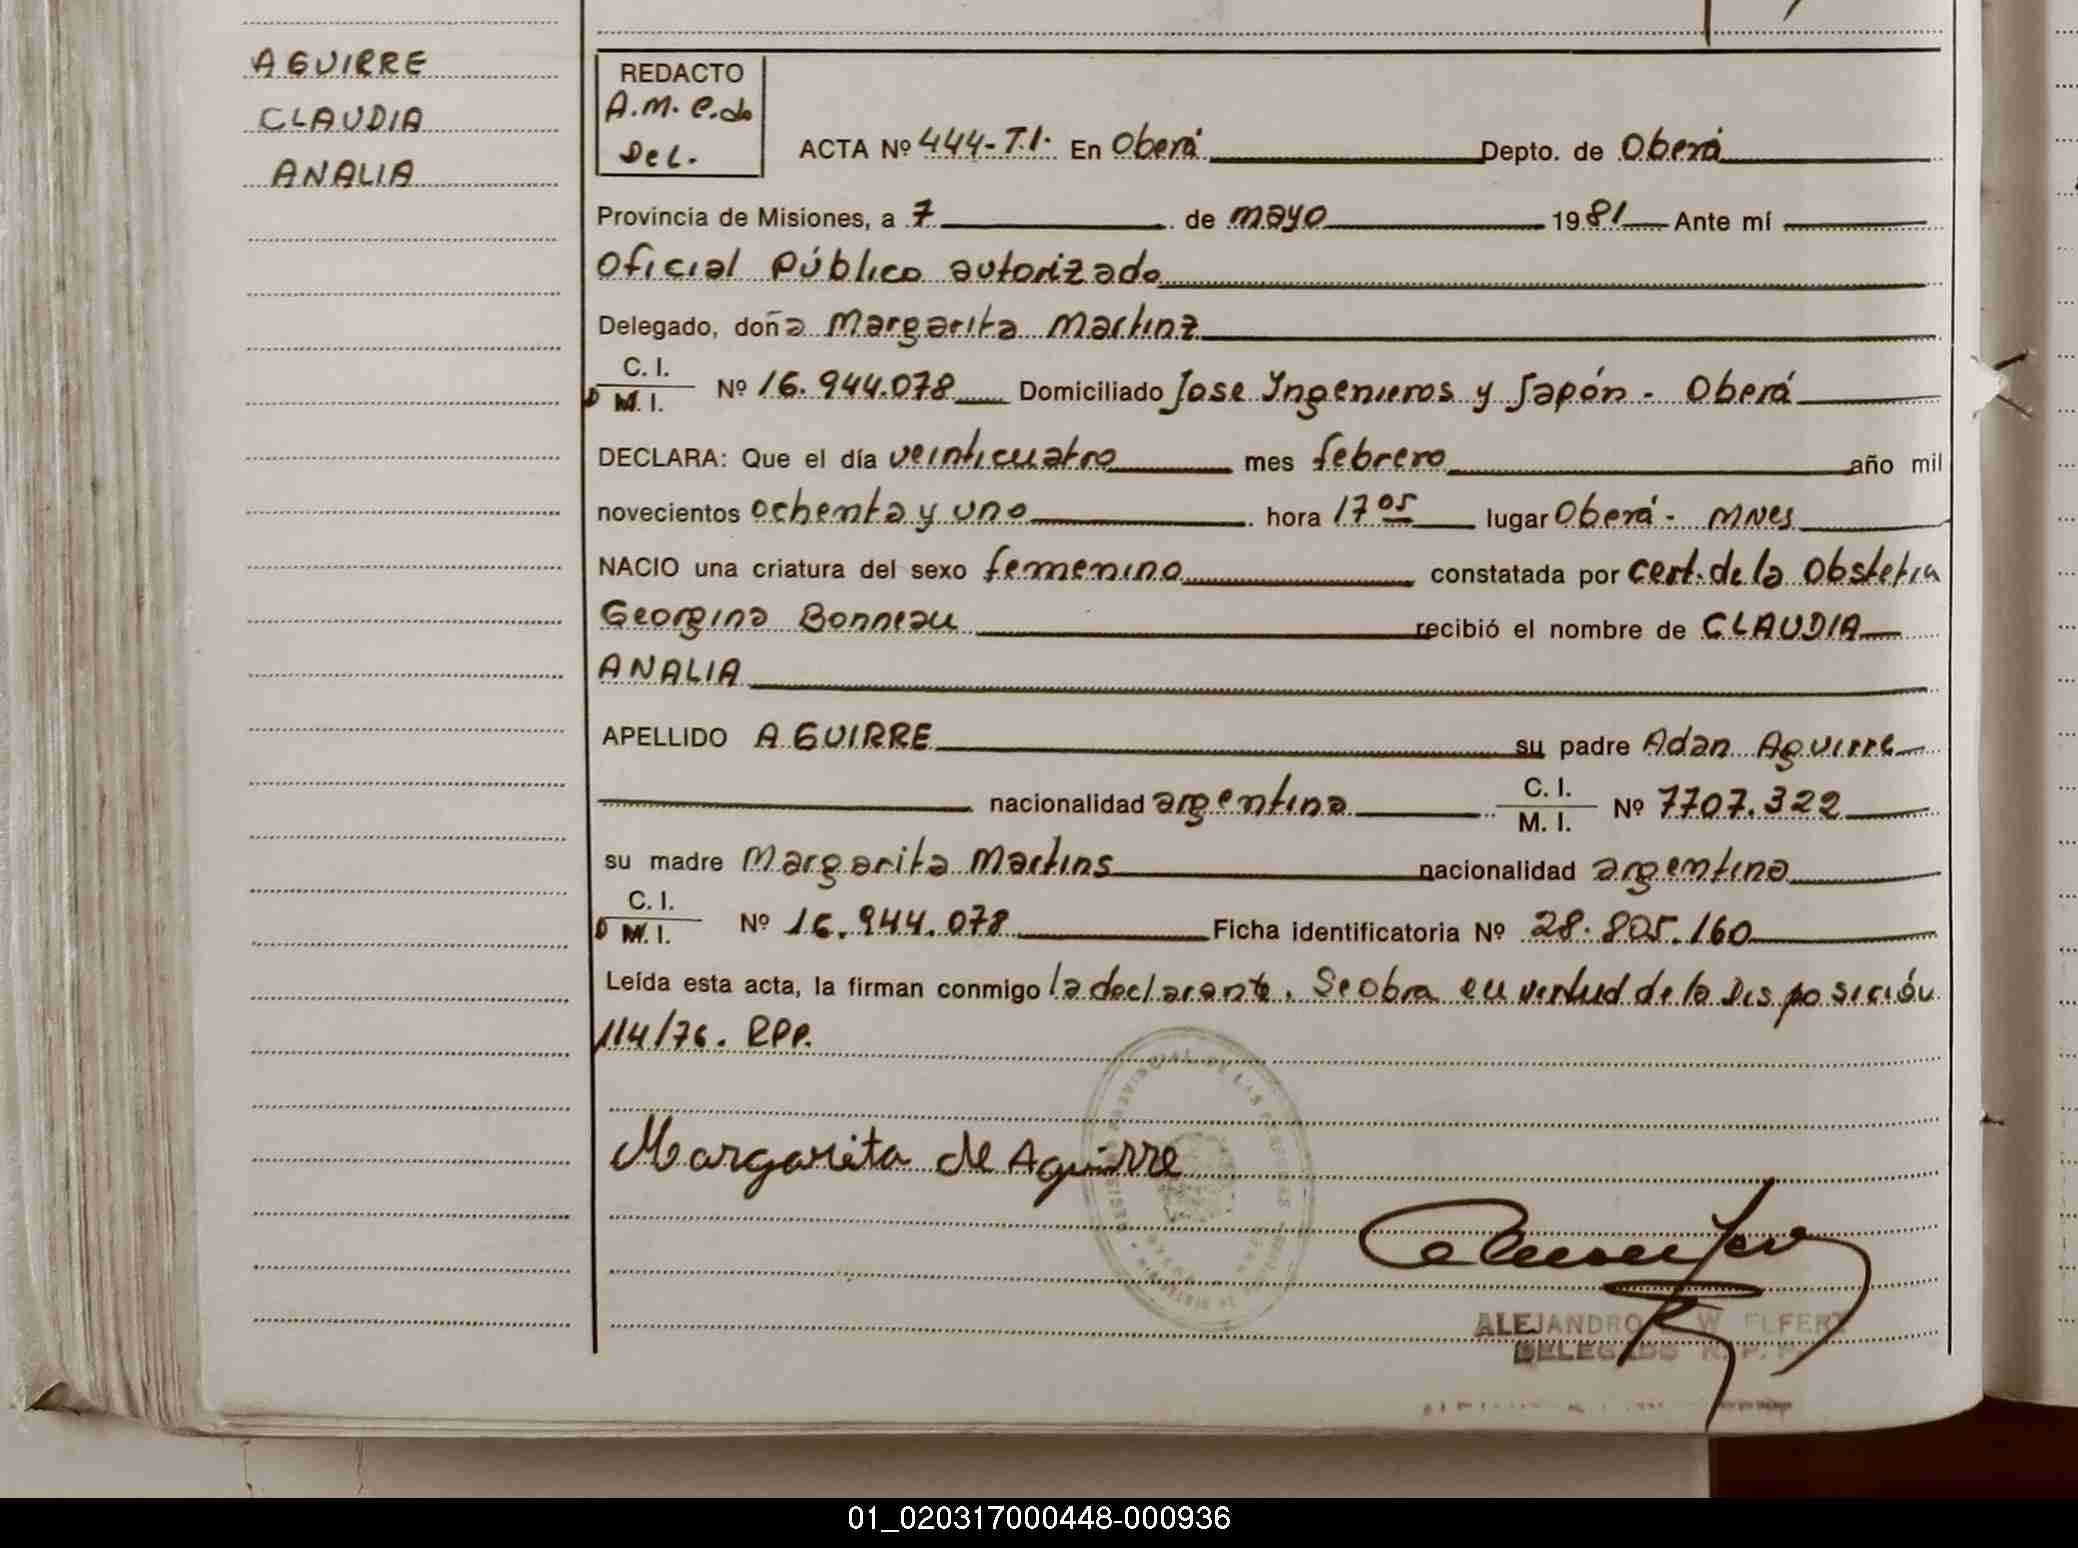 AGUIRRE
CLAUDIA
ANALIA
REDACTO
A.M. C.do
Del.
ACTA Nº 444-T.I. En Oberá Depto. de Oberá
Provincia de Misiones, a 7 de mayo 1981 Ante mí
Oficial Público autorizado
Delegado, doña Margarita Martinz
C. I.
D M. I. Nº 16.944.078 Domiciliado Jose Ingenieros y Japón - Oberá
DECLARA: Que el día veinticuatro mes febrero año mil
novecientos ochenta y uno hora 17 05 lugar Oberá - MNes
NACIO una criatura del sexo femenino constatada por cert. de la Obstetra
Georgina Bonneau recibió el nombre de CLAUDIA
ANALIA
APELLIDO AGUIRRE su padre Adan Aguirre
nacionalidad argentina C. I. M. I. Nº 7707.322
su madre Margarita Martins nacionalidad argentina
C. I.
D M. I. Nº 16.944.078 Ficha identificatoria Nº 28.805.160
Leída esta acta, la firman conmigo la declarante. Se obra en virtud de la Disposición
114/76. RPP.
Margarita de Aguirre
ALEJANDRO W ELFERT
DELEGADO R. P. P.
01_020317000448-000936